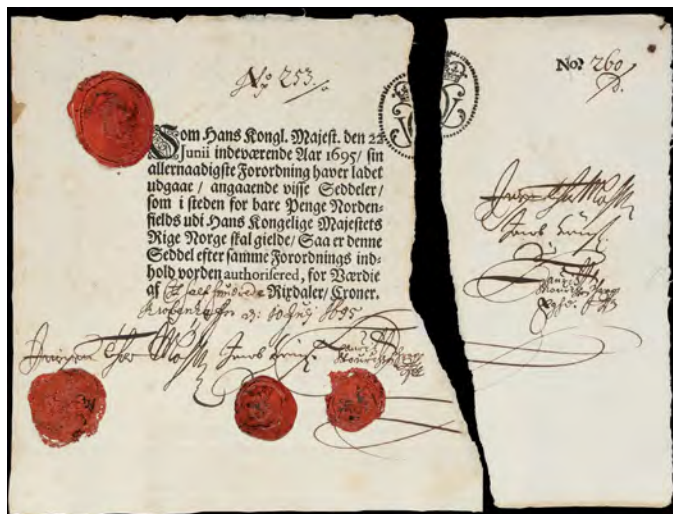 No 253
Som Hans Kongl. Majest. den 22
Junii indeværende Aar 1695/ sin
allernaadigste Forordning haver ladet
udgaae / angaaende visse Seddeler/
som i steden for bare Penge Norden-
fields udi Hans Kongelige Majestets
Rige Norge skal gielde/ Saa er denne
Seddel efter samme Forordnings ind-
hold vorden authorisered, for Værdie
af Et halfhundrede Rixdaler/ Croner.
1695
Jørgen Thor Møhlen
No? 260